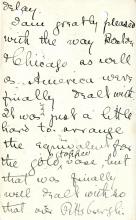 delay.
I am greatly pleased
with the way Boston
& Chicago as well
as America were
finally dealt with
It was just a little
hard to arrange
the equivalent for
stopped
the gold case but
that was finally
well dealt with so
that our Pittsburgh